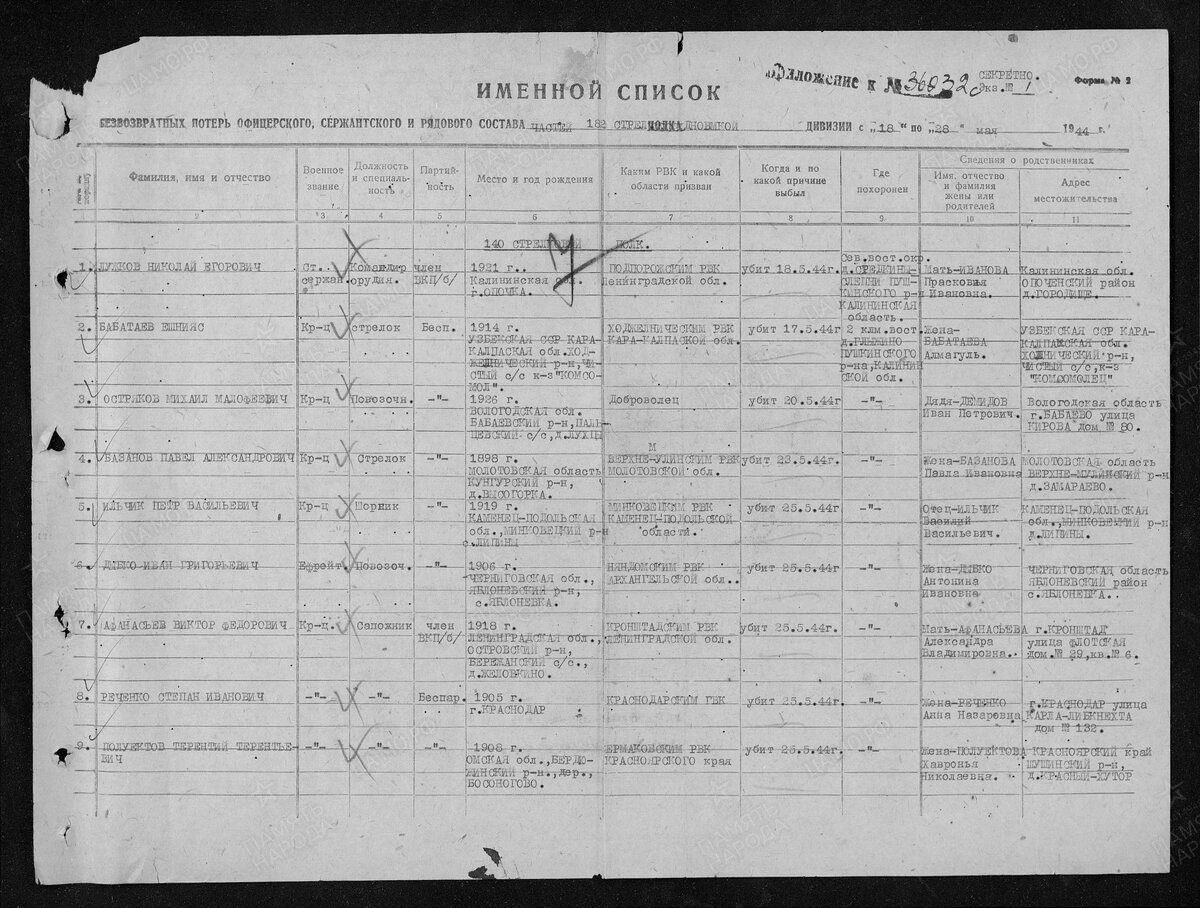 Приложение к № 36032с
СЕКРЕТНО.
Экз.№ 1
Форма № 2
ИМЕННОЙ СПИСОК
БЕЗВОЗВРАТНЫХ ПОТЕРЬ ОФИЦЕРСКОГО, СЕРЖАНТСКОГО И РЯДОВОГО СОСТАВА ЧАСТЕЙ 182 СТРЕЛКОВОЙ ДНОВСКОЙ ДИВИЗИИ с „18“ по „28“ мая 1944 г.
Фамилия, имя и отчество
Военное звание
Должность и специальность
Партийность
Место и год рождения
Каким РВК и какой области призван
Когда и по какой причине выбыл
Где похоронен
Сведения о родственниках
Имя, отчество и фамилия жены или родителей
Адрес местожительства
2 3 4 5 6 7 8 9 10 11
140 СТРЕЛКОВЫЙ ПОЛК.
1. ЛУЖКОВ НИКОЛАЙ ЕГОРОВИЧ
Ст. сержан.
Командир орудия.
член ВКП/б/
1921 г.
Калининская обл.
г.ОПОЧКА.
ПОДПОРОЖСКИМ РВК
Ленинградской обл.
убит 18.5.44г.
Сев.вост.окр.
д.СРЕДКИНЫ-
СЛЕПНИ ПУШ-
КИНСКОГО р-н
КАЛИНИНСКАЯ
область.
Мать-ИВАНОВА
Прасковья
Ивановна.
Калининская обл.
ОПОЧЕНСКИЙ район
д.ГОРОДИЩЕ.
2. БАБАТАЕВ ЕШНИЯС
Кр-ц
стрелок
Бесп.
1914 г.
УЗБЕКСКАЯ ССР КАРА-
КАЛПАСКАЯ обл.ХОД-
ЖЕЛНИЧЕСКИЙ р-н,ЧИ-
СТЫЙ с/с к-з"КОМСО-
МОЛ".
ХОДЖЕЛНИЧЕСКИМ РВК
КАРА-КАЛПАСКОЙ обл.
убит 17.5.44г
2 клм.вост.
д.ГЛЫЖИНО
ПУШКИНСКОГО
р-на,КАЛИНИН
СКОЙ обл.
Жена-
БАБАТАЕВА
Алмагуль.
УЗБЕКСКАЯ ССР КАРА-
КАЛПАСКАЯ обл.
ХОДНИЧЕСКИЙ р-н,
ЧИСТЫЙ с/с,к-з
"КОМСОМОЛЕЦ"
3. ОСТРЯКОВ МИХАИЛ МАЛОФЕЕВИЧ
Кр-ц
Повозочн.
-"-
1926 г.
ВОЛОГОДСКАЯ обл.
БАБАЕВСКИЙ р-н,ПАЛЬ-
ЦЕВСКИЙ с/с,д.ЛУХЦЫ
Доброволец
убит 20.5.44г
-"-
Дядя-ДЕМИДОВ
Иван Петрович.
Вологодская область
г.БАБАЕВО улица
КИРОВА дом № 80.
4. БАЗАНОВ ПАВЕЛ АЛЕКСАНДРОВИЧ
Кр-ц
Стрелок
-"-
1898 г.
МОЛОТОВСКАЯ область
КУНГУРСКИЙ р-н,
д.ВЫСОГОРКА.
М
ВЕРХНЕ-УЛИНСКИМ РВК
МОЛОТОВСКОЙ обл.
убит 23.5.44г.
-"-
Жена-БАЗАНОВА
Павла Ивановна
МОЛОТОВСКАЯ область
ВЕРХНЕ-МУЛИНСКИЙ р-н
д.ЗАМАРАЕВО.
5. ИЛЬЧИК ПЕТР ВАСИЛЬЕВИЧ
Кр-ц
Шорник
-"-
1919 г.
КАМЕНЕЦ-ПОДОЛЬСКАЯ
обл.,МИНКОВЕЦКИЙ р-н
с.ЛИПИНЫ
МИНКОВЕЦКИМ РВК
КАМЕНЕЦ-ПОДОЛЬСКОЙ
области.
убит 25.5.44г.
-"-
Отец-ИЛЬЧИК
Василий
Васильевич.
КАМЕНЕЦ-ПОДОЛЬСКАЯ
обл.,МИНКОВЕЦКИЙ р-н
д.ЛИПИНЫ.
6. ДЫБКО ИВАН ГРИГОРЬЕВИЧ
Ефрейт.
Повозоч.
-"-
1906 г.
ЧЕРНИГОВСКАЯ обл.,
ЯБЛОНЕВСКИЙ р-н,
с.ЯБЛОНЕВКА.
НЯНДОМСКИМ РВК
АРХАНГЕЛЬСКОЙ обл..
убит 25.5.44г
-"-
Жена-ДЫБКО
Антонина
Ивановна
ЧЕРНИГОВСКАЯ область
ЯБЛОНЕВСКИЙ район
с.ЯБЛОНЕВКА.
7. АФАНАСЬЕВ ВИКТОР ФЕДОРОВИЧ
Кр-ц.
Сапожник
член ВКП/б/
1918 г.
ЛЕНИНГРАДСКАЯ обл.,
ОСТРОВСКИЙ р-н,
БЕРЕЖАНСКИЙ с/с.,
д.ЖЕЛОВКИНО.
КРОНШТАДСКИМ РВК
ЛЕНИНГРАДСКОЙ обл.
убит 25.5.44г.
-"-
Мать-АФАНАСЬЕВА
Александра
Владимировна.
г.КРОНШТАД
улица ФЛОТСКАЯ
дом.№ 29,кв.№ 6.
8. РЕЧЕНКО СТЕПАН ИВАНОВИЧ
-"-
-"-
Беспар.
1905 г.
г.КРАСНОДАР
КРАСНОДАРСКИМ ГВК
убит 25.5.44г.
-"-
Жена-РЕЧЕНКО
Анна Назаревна
г.КРАСНОДАР улица
КАРЛА-ЛИБКНЕХТА
дом № 132.
9. ПОЛУЕКТОВ ТЕРЕНТИЙ ТЕРЕНТЬЕ-
ВИЧ
-"-
-"-
-"-
1908 г.
ОМСКАЯ обл.,БЕРДЮ-
ЖИНСКИЙ р-н.,дер.,
БОСОНОГОВО.
ЕРМАКОВСКИМ РВК
КРАСНОЯРСКОГО края
убит 26.5.44г.
-"-
Жена-ПОЛУЕКТОВА
Хавронья
Николаевна.
КРАСНОЯРСКИЙ край
ШУШИНСКИЙ р-н,
д.КРАСНЫЙ-ХУТОР